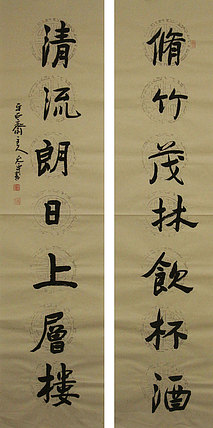 脩竹茂林飲杯酒
清流朗日上層樓